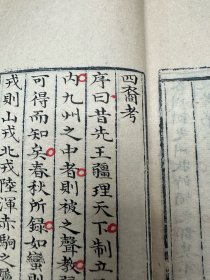 四裔考
序曰昔先王疆理天下制立
內九州之中者則被之聲教
可得而知矣春秋所録如蠻
戎則山戎北戎陸渾赤駒之